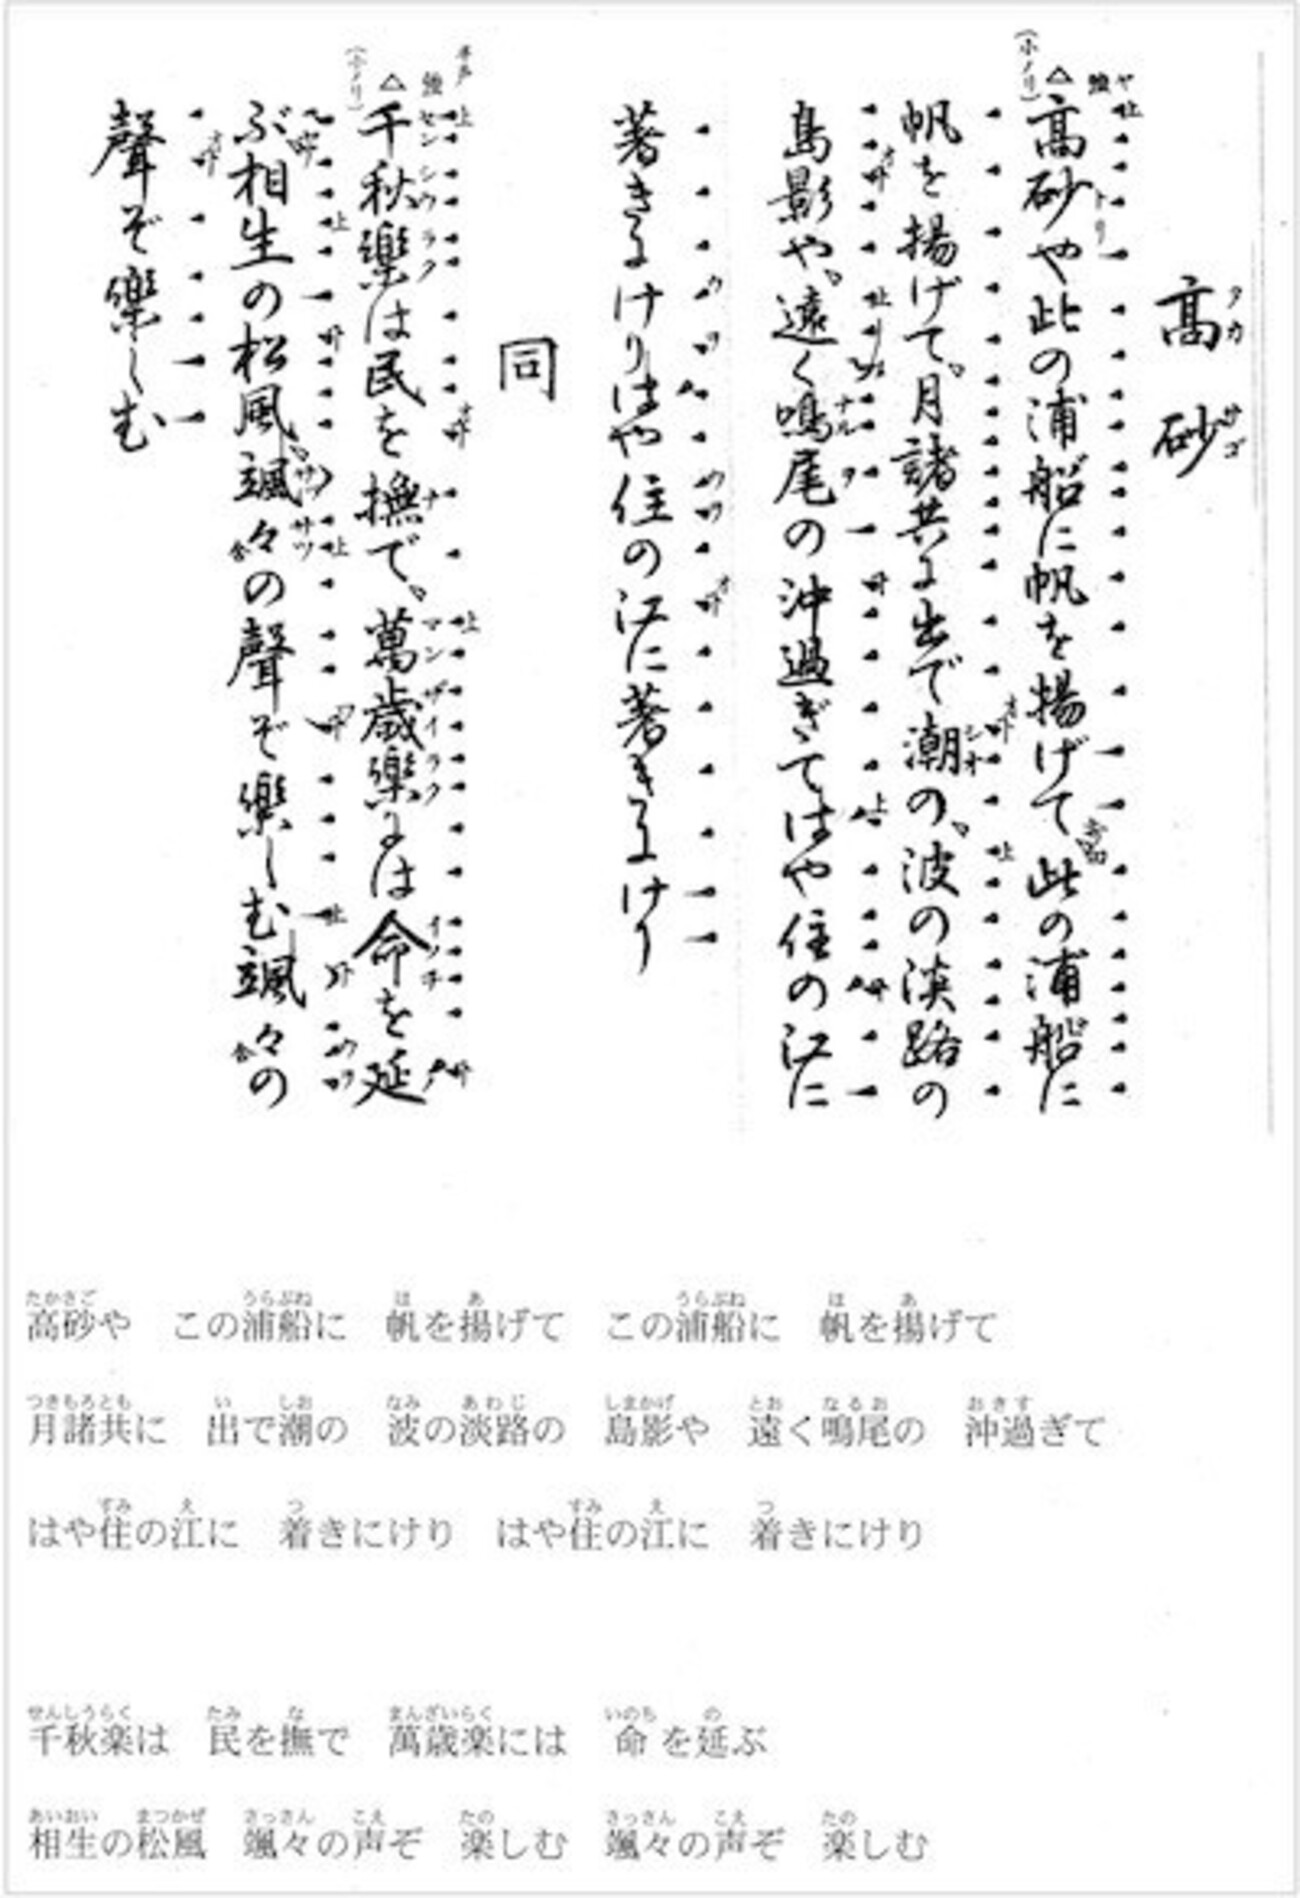 高砂
高砂や此の浦船に帆を揚げて此の浦船に
帆を揚げて、月諸共に出で潮の、波の淡路の
島影や、遠く鳴尾の沖過ぎてはや住の江に
著きにけりはや住の江に著きにけり
同
千秋樂は民を撫で、萬歳樂には命を延
ぶ相生の松風、颯々の聲ぞ樂しむ颯々の
聲ぞ樂しむ
高砂や　この浦船に　帆を揚げて　この浦船に　帆を揚げて
月諸共に　出で潮の　波の淡路の　島影や　遠く鳴尾の　沖過ぎて
はや住の江に　着きにけり　はや住の江に　着きにけり
千秋楽は　民を撫で　萬歳楽には　命を延ぶ
相生の松風　颯々の声ぞ　楽しむ　颯々の声ぞ　楽しむ